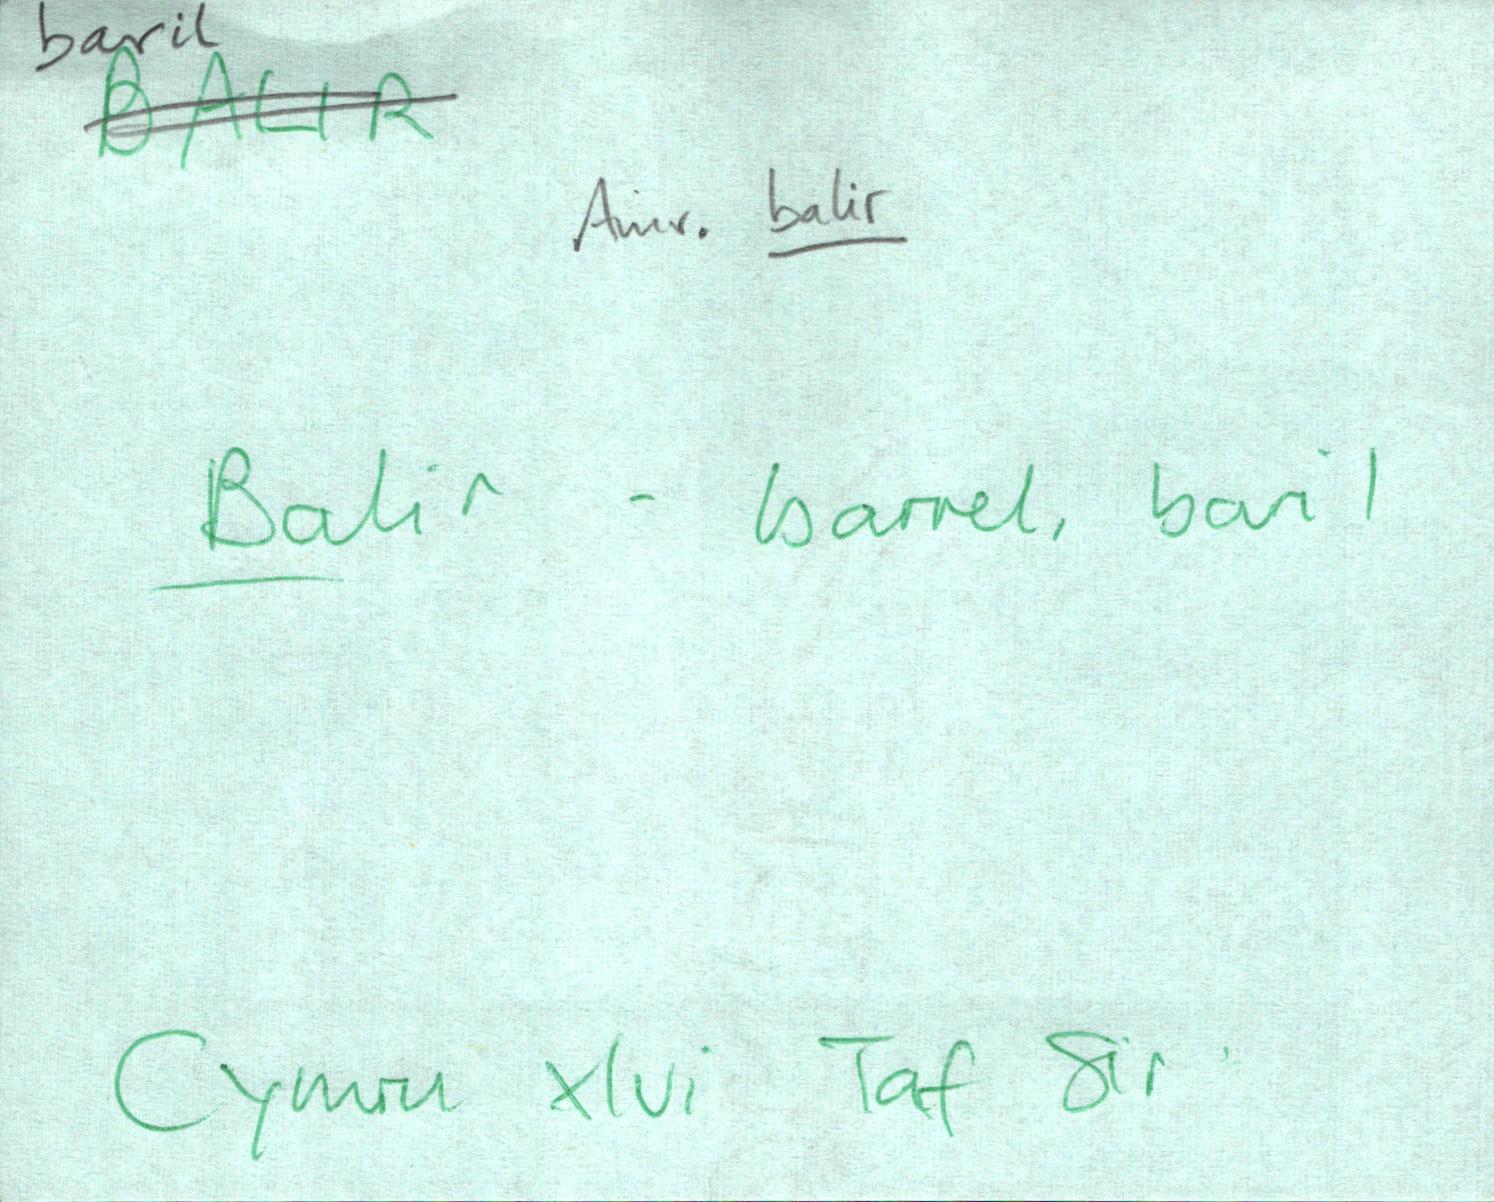 baril
BALIR
Amr. balir
Balir - barrel, baril
Cymru xlvi Taf Sir